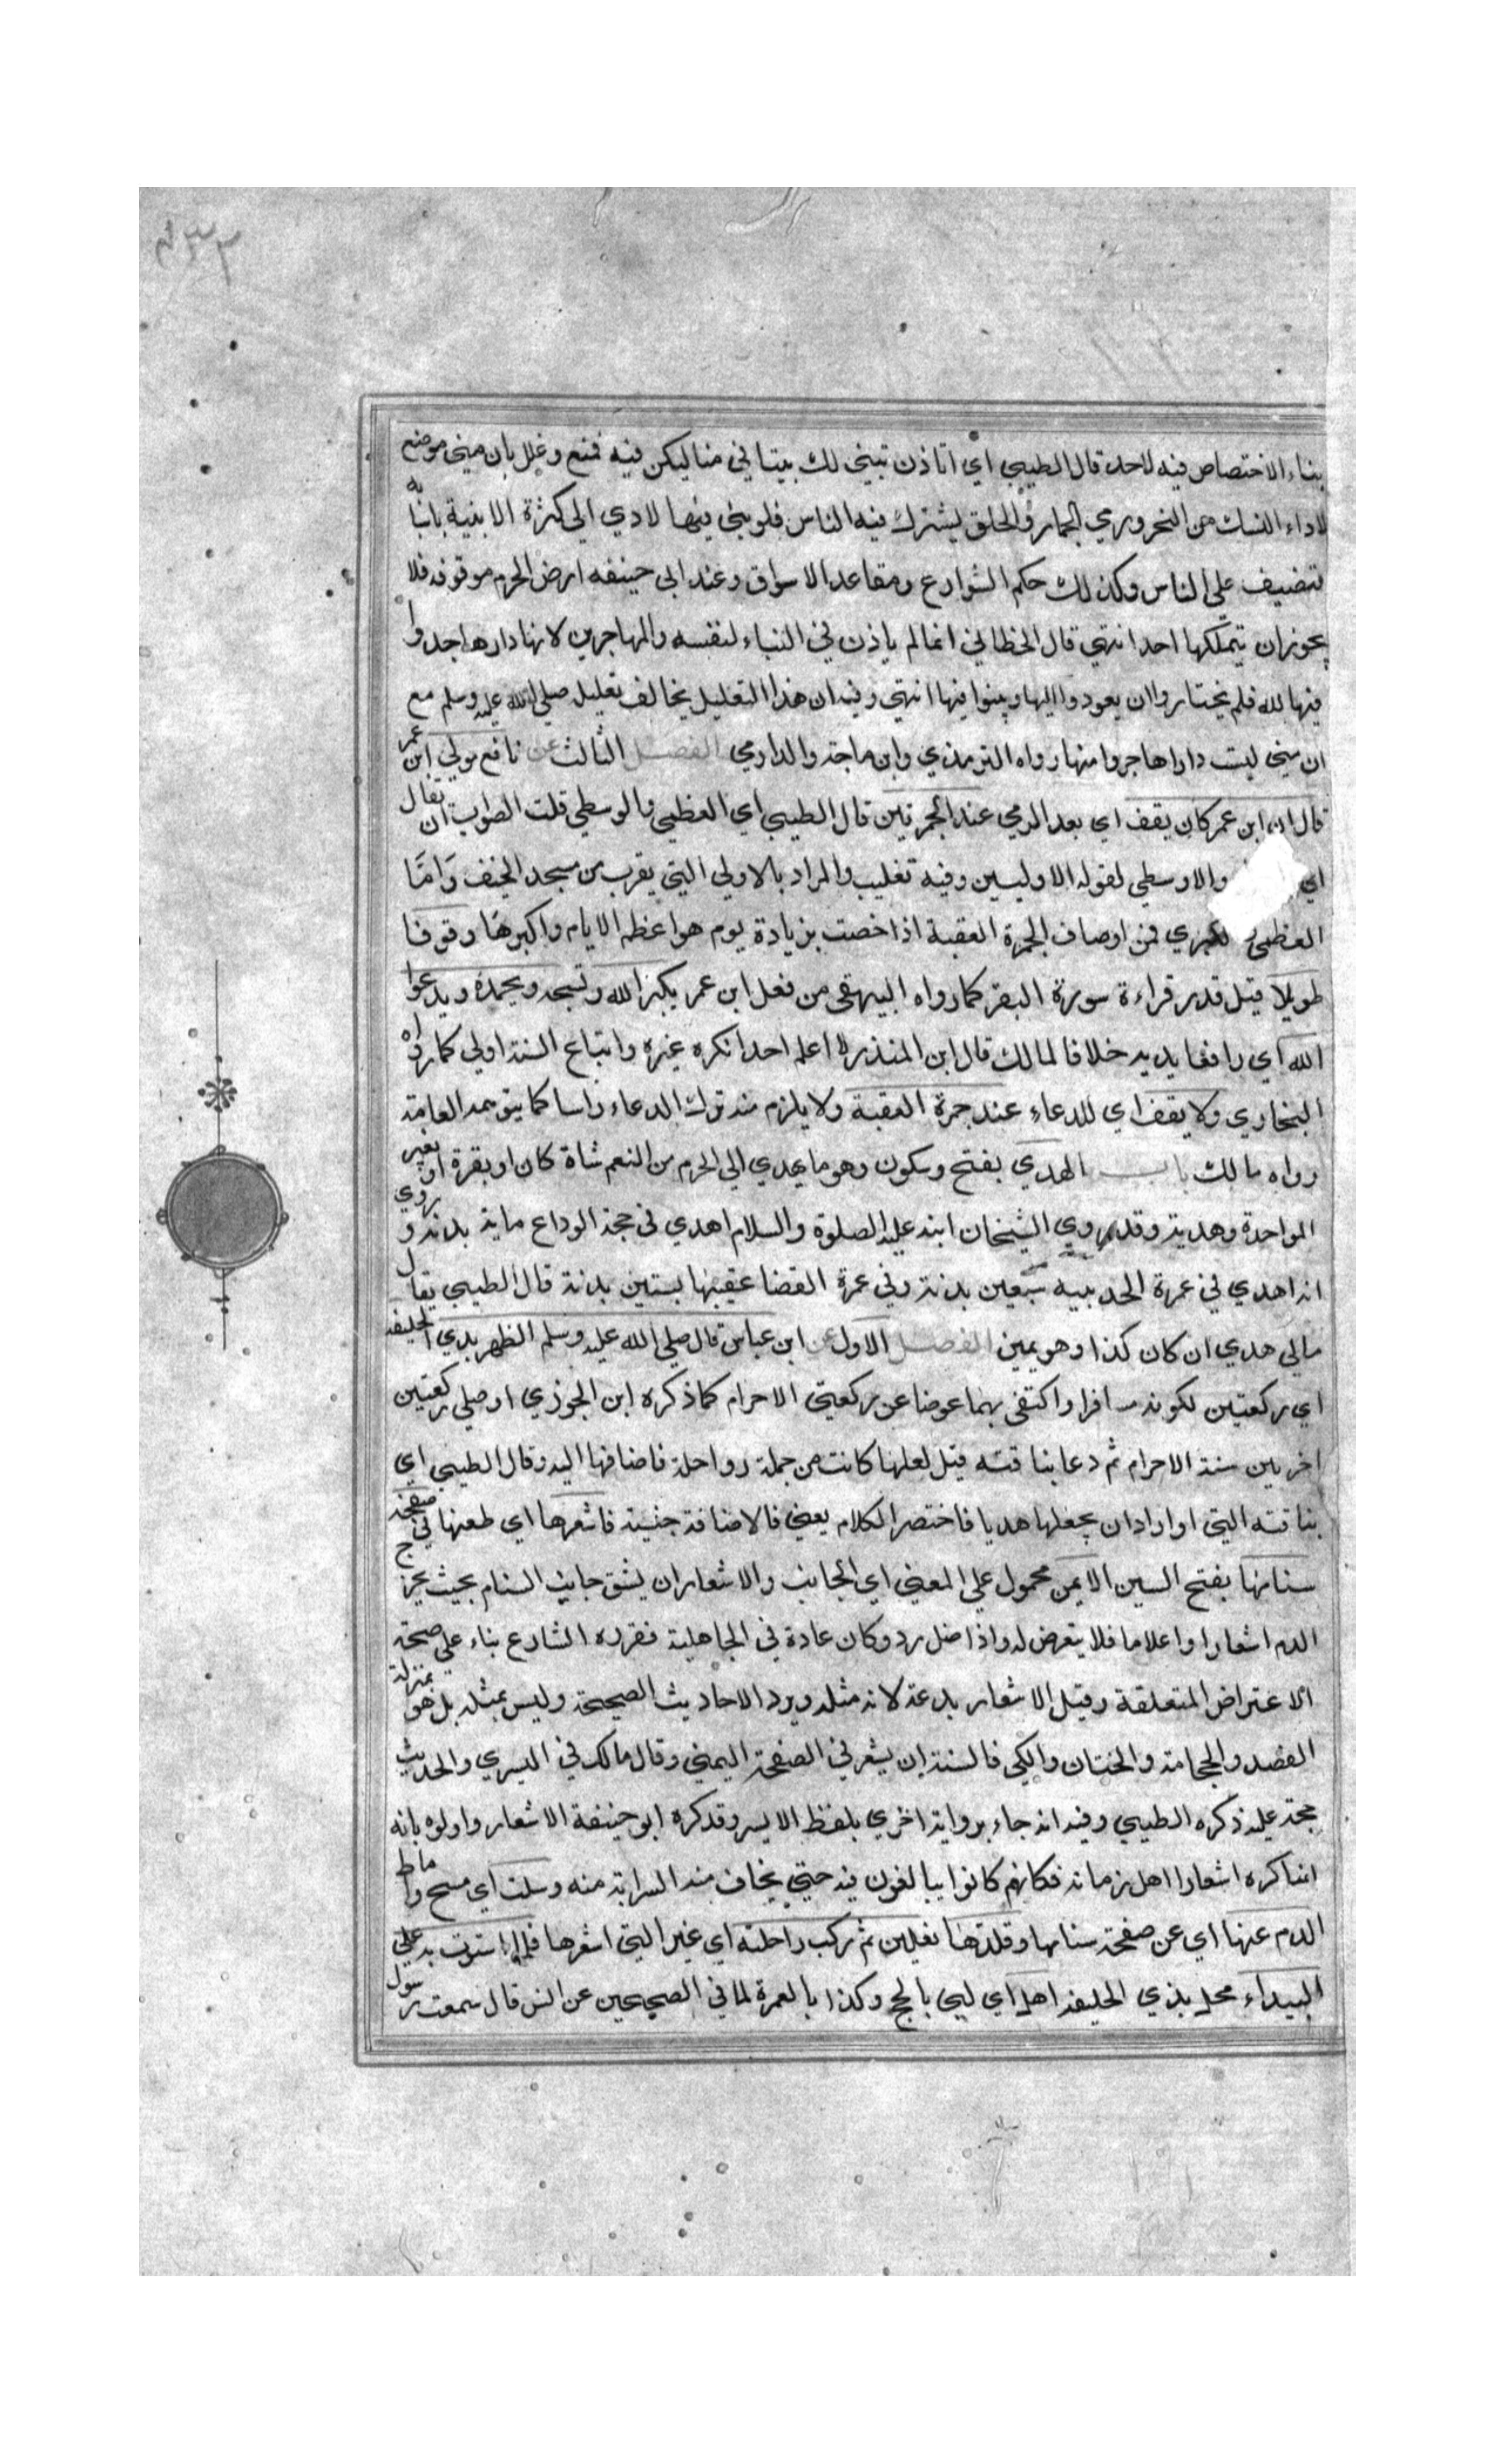 ٤٣٢
بناء الاختصاص فيه لاحد قال الطيبي اي اتاذن تبني لك بيتا في منا ليكن فيه فمنع وعلل بان ميني موضع
لاداء النسك من النحر ورمي الجمار والحلق يشترك فيه الناس فلو بني فيها لادي الي كثرة الابنية بانيا به
فتضيف علي الناس وكذلك حكم الشوارع ومقاعد الاسواق وعند ابي حنيفه ارض الحرم موقوفه فلا
يجوز ان يتملكها احد انتهي قال الخطابي انما لم ياذن في البناء لنفسه والمهاجرين لانها دار هاجروا
فيها لله فلم يختاروا ان يعودوا اليها ويبنوا فيها انتهي وفيه ان هذا التعليل يخالف تعليل صلي الله عليه وسلم مع
ان ميني ليست دارا هاجروا منها رواه الترمذي وابن ماجة والدارمي الفصل الثالث عن نافع مولي ابن عمر
قال ان ابن عمر كان يقف اي بعد الرمي عند الجمرتين قال الطيبي اي العظمي والوسطي قلت الصواب ان يقال
اي والاوسطي لقوله الاوليين وفيه تغليب والمراد بالاولي التي يقرب من مسجد الخيف وَامّا
العظمي الكبري فمن اوصاف الجمرة العقبة اذا خصت بزيادة يوم هو اعظم الايام واكبرها وقوفا
طويلا قيل قدر قراءة سورة البقر كما رواه البيهقي من فعل ابن عمر يكبر الله وتسبحه ويحمده ويدعوا
الله اي رافعا يديه خلافا لمالك قال ابن المنذر لا اعلم احدا نكره غيره واتباع السنة اولي كما رواه
البخاري ولا يقف اي للدعاء عند جمرة العقبة ولا يلزم منه ترك الدعاء راسا كما يتوهمه العامة
رواه مالك باب الهدي بفتح وسكون وهو ما يهدي الي الحرم من النعم شاة كان او بقرة او بعير
الواحدة وهدية وقد روي الشيخان انه عليه الصلوة والسلام اهدي في حجة الوداع ماية بدنة و روي
انه اهدي في عمرة الحديبيه سبعين بدنة وفي عمرة القضا عقيبها بستين بدنة قال الطيبي يقال
مالي هدي ان كان كذا وهو يمين الفصل الاول عن ابن عباس قال صلي الله عليه وسلم الظهر بدي الحليفه
اي ركعتين لكونه مسافرا واكتفي بهما عوضا عن ركعتي الاحرام كما ذكره ابن الجوزي او صلي ركعتين
اخريين سنة الاحرام ثم دعا بناقته قيل لعلها كانت من جملة رواحله فاضافها اليه وقال الطيبي اي
بناقته التي اواراد ان يجعلها هديا فاختصر الكلام يعني فالاضافة جنسية فاشعرها اي طعنها في صفحة
سنامها بفتح السين الايمن محمول علي المعني اي الجانب والاشعار ان يشق جانب السنام بحيث يخرج
الدم اشعارا واعلاما فلا يتعرض له واذا ضل رد وكان عادة في الجاهلية فقرره الشارع بناء علي صحة
الاعتراض المتعلقة وقيل الاشعار بدعة لانه مثله ويرد الاحاديث الصحيحة وليس بمثله بل هو بمنزلة
الفصد والحجامة والختان والكي فالسنة ان يشعر في الصفحة اليمني وقال مالك في اليسري والحديث
حجة عليه ذكره الطيبي وفيه انه جاء برواية اخري بلفظ الايسر وقد كره ابو حنيفة الاشعار واولوه بانه
انما كره اشعار اهل زمانه فكانهم كانوا يبالغون فيه حتي يخاف منه السراية منه وسلت اي مسح واماط
الدم عنها اي عن صفحة سنامها وقلدها نعلين ثم ركب راحلته اي غير التي اشعرها فلما استوت به علي
البيداء محل بذي الحليفه اهل اي لبي بالحج وكذا بالعمرة لما في الصحيحين عن انس قال سمعت رسول